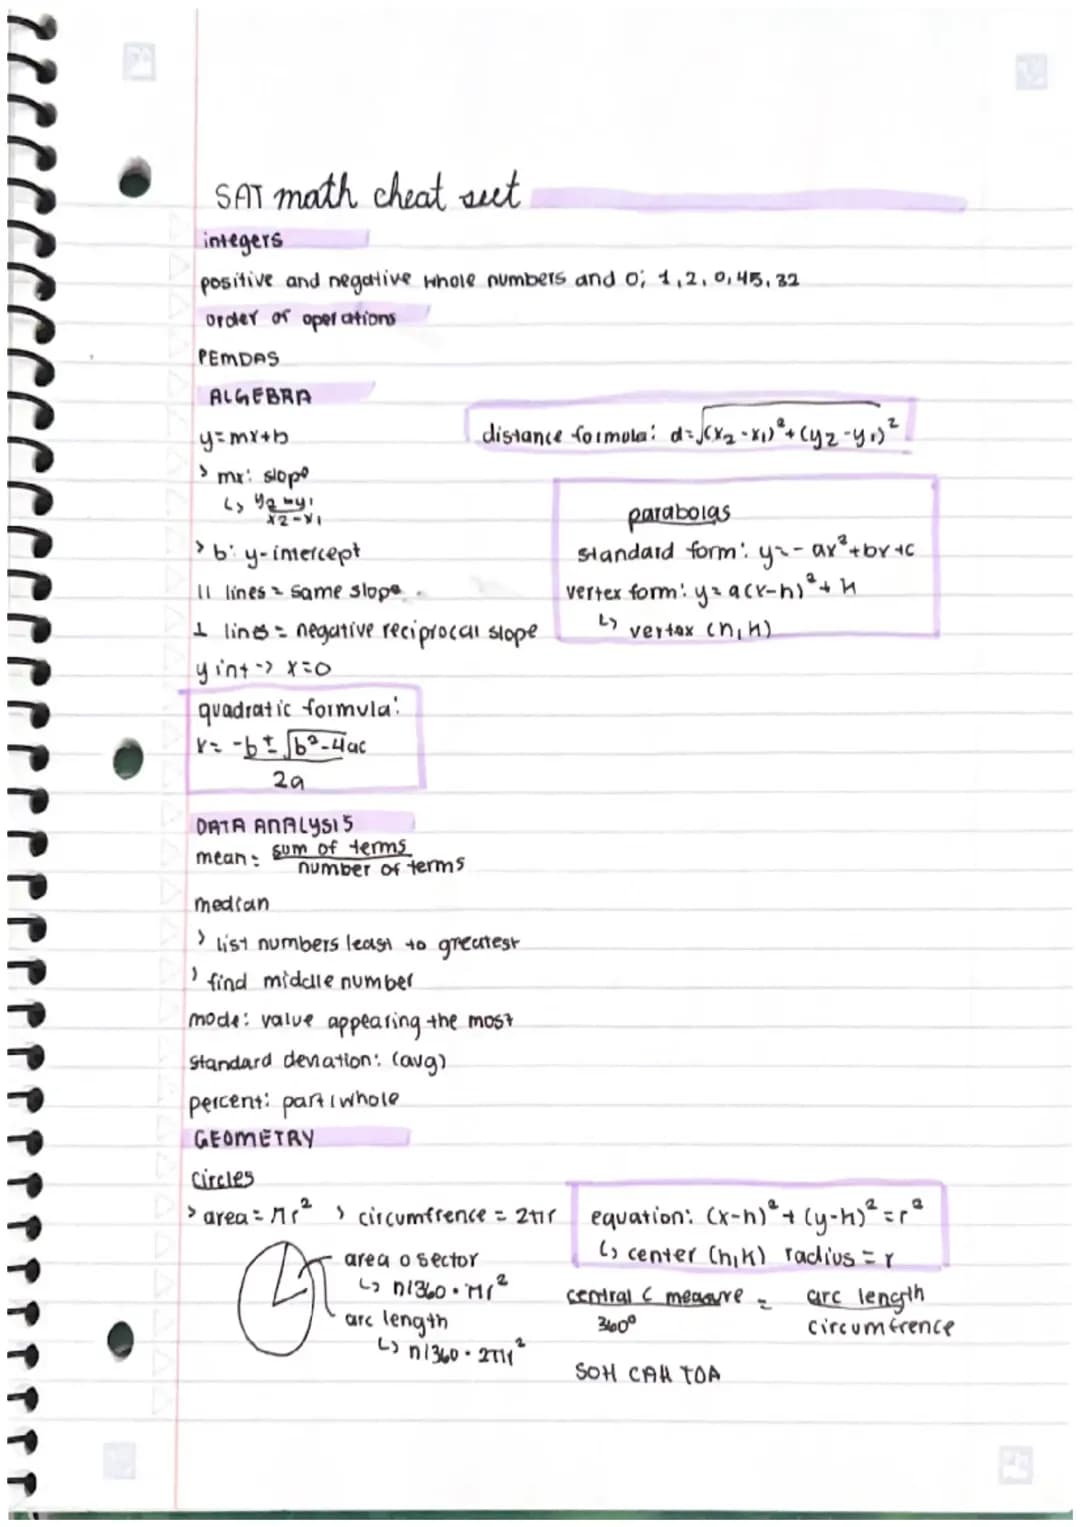 SAT math cheat seet
integers
positive and negative whole numbers and 0; 1,2,0,45,32
order of operations
PEMDAS
ALGEBRA
y=mx+b
distance formula: d=√(x₂-x₁)²+(y₂-y₁)²
> mx: slope
↳ y₂-y₁
x₂-x₁
> b: y-intercept
|| lines = same slope
⊥ lines = negative reciprocal slope
y int -> x=0
parabolas
standard form: y=-ax²+bx+c
vertex form: y=a(x-h)²+k
↳ vertex (h,k)
quadratic formula:
x= -b±√b²-4ac
2a
DATA ANALYSIS
mean= sum of terms
number of terms
median
> list numbers least to greatest
> find middle number
mode: value appearing the most
standard deviation: (avg)
percent: part/whole
GEOMETRY
circles
> area=πr² > circumfrence = 2πr
area o sector
↳ n/360·πr²
arc length
↳ n/360·2πr²
equation: (x-h)²+(y-k)²=r²
↳ center (h,k) radius=r
central ∠ measure = arc length
360° circumfrence
SOH CAH TOA